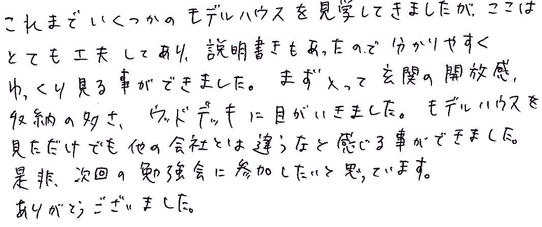 これまでいくつかのモデルハウスを見学してきましたが、ここは
とても工夫してあり、説明書きもあったので分かりやすく
ゆっくり見る事ができました。まず入って玄関の開放感、
収納の多さ、ウッドデッキに目がいきました。モデルハウスを
見ただけでも他の会社とは違うなと感じる事ができました。
是非、次回の勉強会に参加したいと思っています。
ありがとうございました。